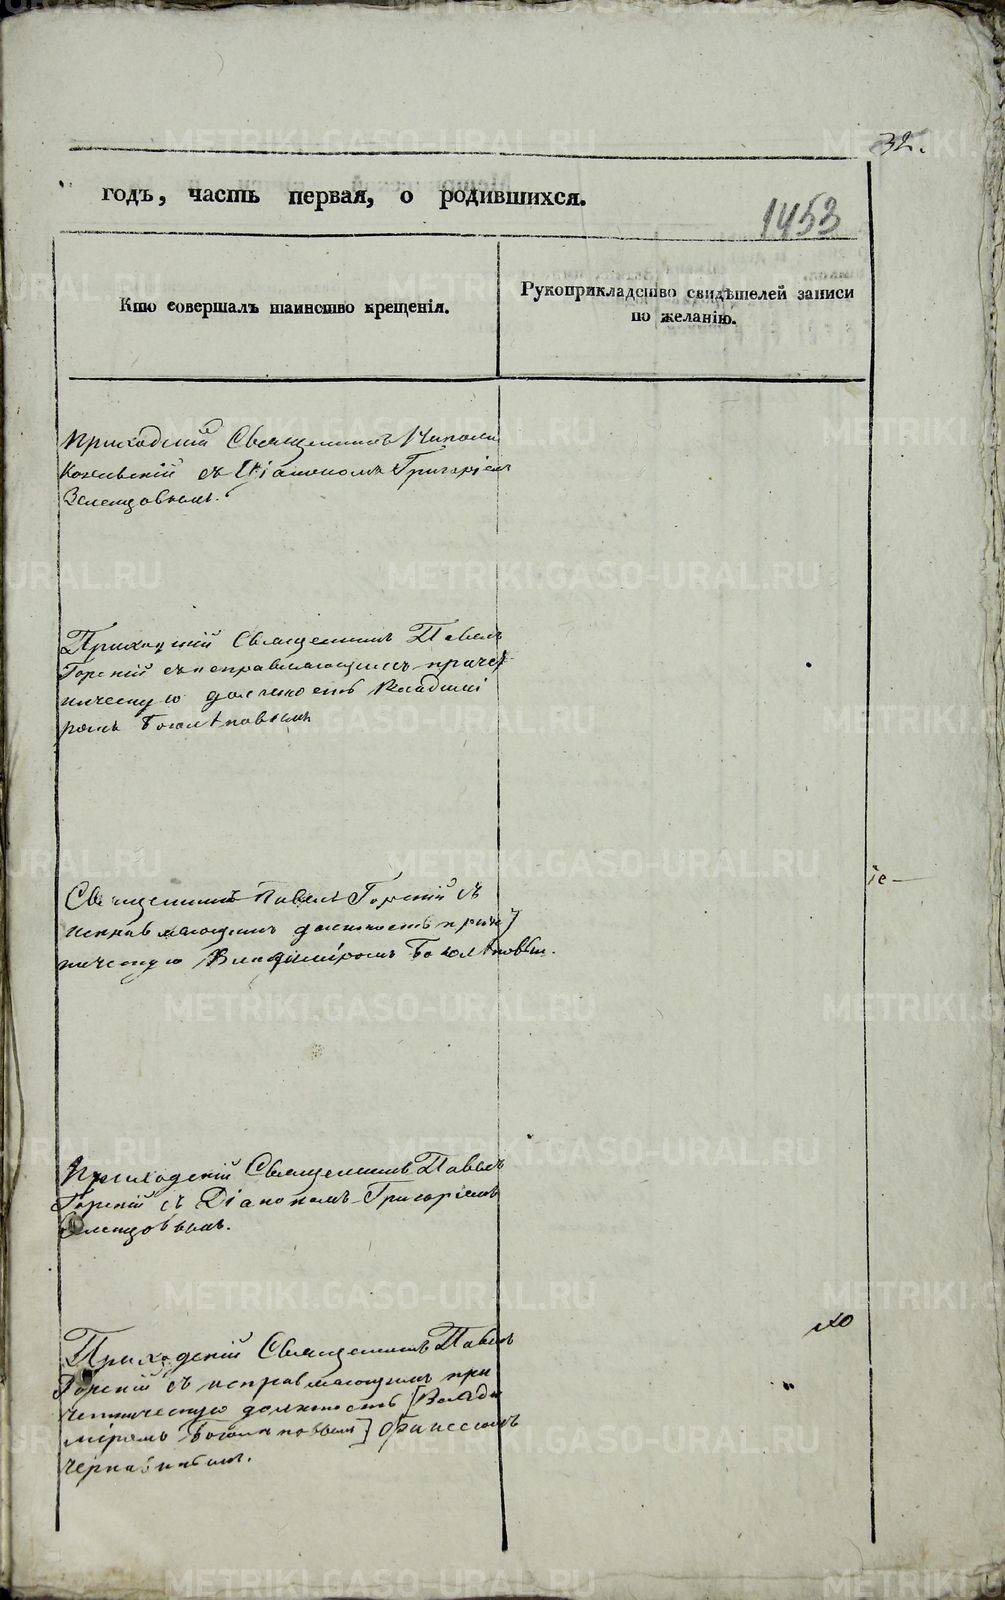 32.
годъ, часть первая, о родившихся.
1453
Кто совершалъ таинство крещенія.
Рукоприкладство свидѣтелей записи
по желанію.
Приходскій Священникъ
съ Діакономъ Григоріемъ
Зеленцовымъ.
Приходскій Священникъ Павелъ
Горскій съ исправляющимъ причет
ническую должность Влади
ромъ
Священникъ Павелъ Горскій съ
исправляющимъ должность прич
ническую Владиміромъ
іе
Приходскій Священникъ Павелъ
Горскій съ Діакономъ Григоріемъ
Зеленцовымъ.
Приходскій Священникъ Павелъ
Горскій съ исправляющимъ при
четническую должность [Влади
міромъ
METRIKI.GASO-URAL.RU